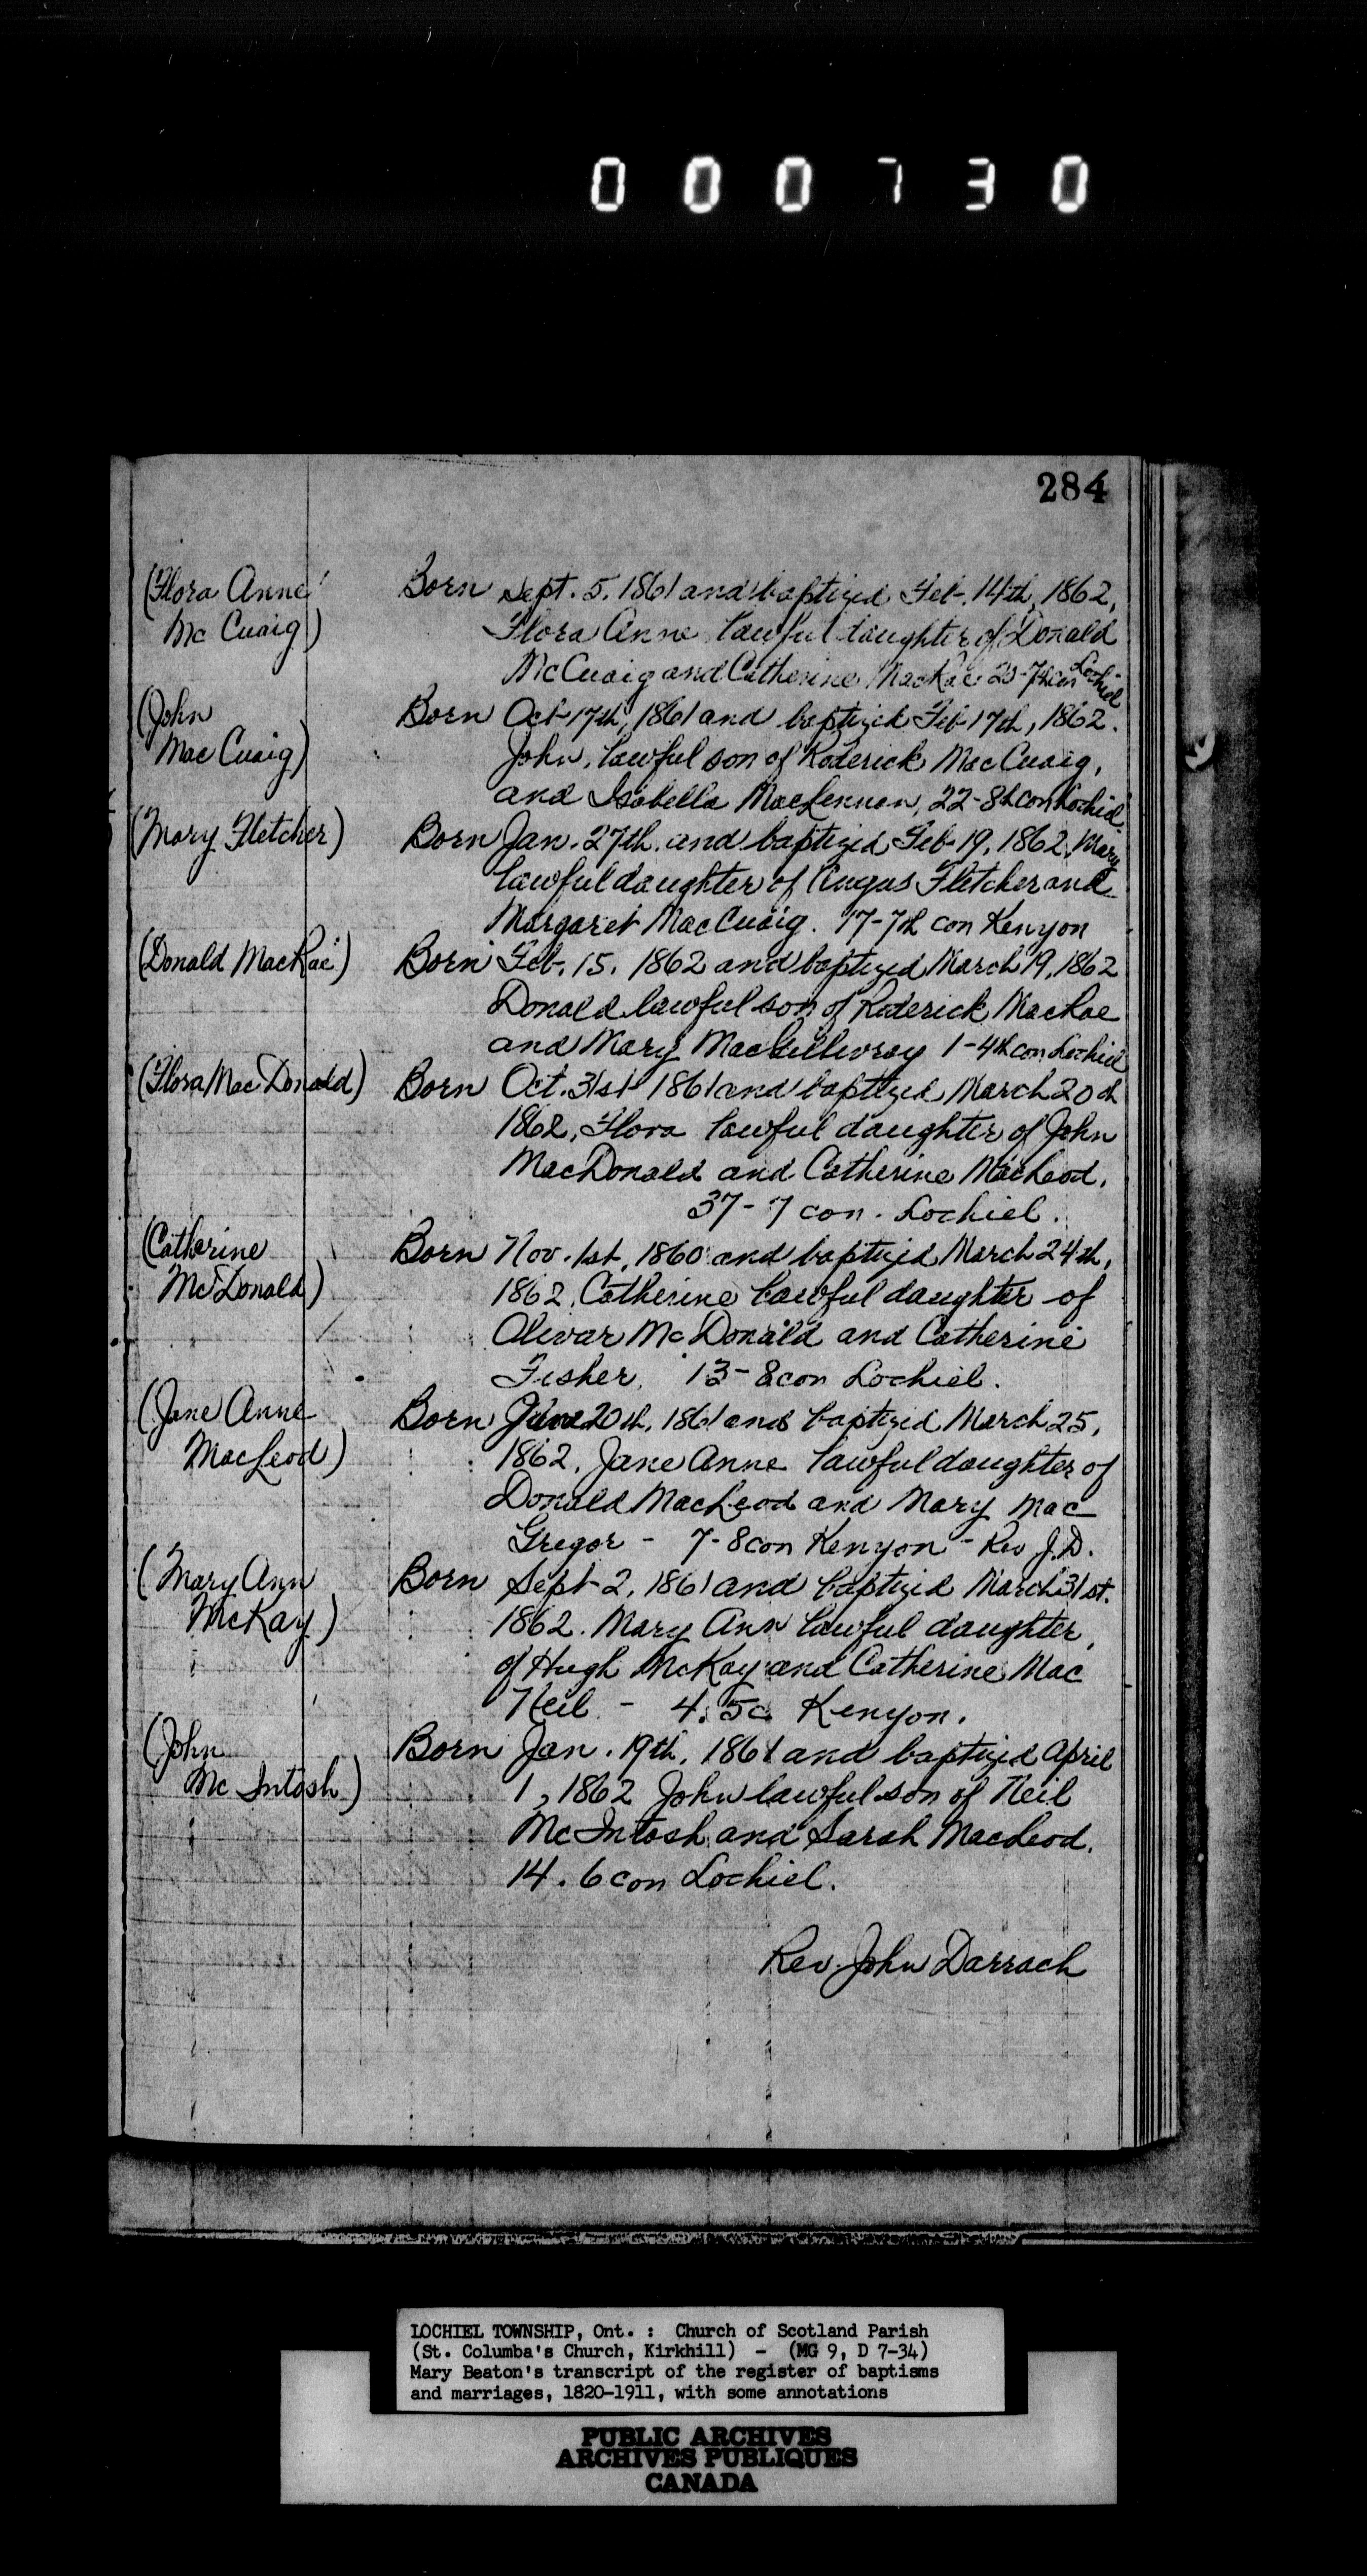 000730
284
(Flora Anne
Mc Cuaig)
Born Sept. 5. 1861 and baptized Feb. 14th, 1862,
Flora Anne lawful daughter of Donald
McCuaig and Catherine MacRae 20-7th con Lochiel
(John
Mac Cuaig)
Born Oct 17th, 1861 and baptized Feb 17th, 1862.
John, lawful son of Roderick MacCuaig,
and Isabella MacLennan, 22-8th con Lochiel.
(Mary Fletcher)
Born Jan. 27th. and baptized Feb 19, 1862, Mary
lawful daughter of Angus Fletcher and
Margaret MacCuaig. 17-7th con Kenyon
(Donald MacRae)
Born Feb. 15. 1862 and baptized March 19, 1862
Donald lawful son of Roderick MacRae
and Mary MacGillivray 1-4th con Lochiel
(Flora MacDonald)
Born Oct. 31st 1861 and baptized March 20th
1862, Flora lawful daughter of John
MacDonald and Catherine MacLeod.
37-7 con. Lochiel.
(Catherine
McDonald)
Born Nov. 1st, 1860 and baptized March 24th,
1862, Catherine lawful daughter of
Alevar McDonald and Catherine
Fisher. 13-8con Lochiel.
(Jane Anne
MacLeod)
Born 20th, 1861 and baptized March 25,
1862, Jane Anne lawful daughter of
Donald MacLeod and Mary Mac
Gregor - 7-8con Kenyon - Rev J.D.
(Mary Ann
McKay)
Born Sept 2, 1861 and baptized March 31st.
1862. Mary Ann lawful daughter
of Hugh McKay and Catherine Mac
Neil - 4.5c. Kenyon.
(John
Mc Intosh)
Born Jan. 19th, 1861 and baptized April
1, 1862 John lawful son of Neil
McIntosh and Sarah MacLeod.
14. 6 con Lochiel.
Rev. John Darrach
LOCHIEL TOWNSHIP, Ont. : Church of Scotland Parish
(St. Columba's Church, Kirkhill) - (MG 9, D 7-34)
Mary Beaton's transcript of the register of baptisms
and marriages, 1820-1911, with some annotations
PUBLIC ARCHIVES
ARCHIVES PUBLIQUES
CANADA